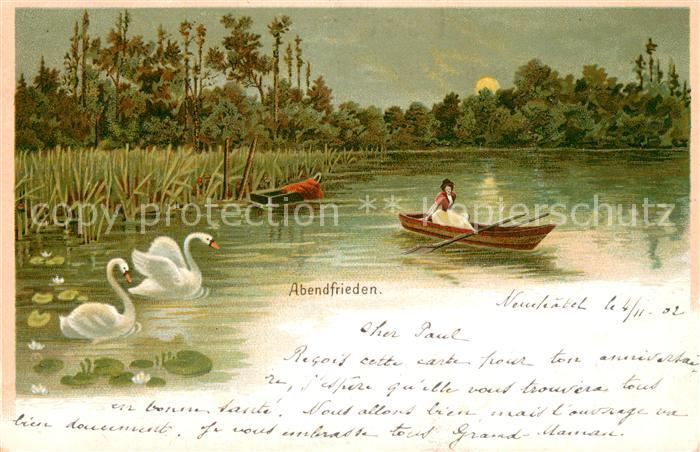 copy protection ** Kopierschutz
Abendfrieden.
Neuchâtel le 4/II. 02
Cher Paul
Reçois cette carte pour ton anniversai
re, j'espère qu'elle vous trouvera tous
en bonne santé. Nous allons bien, mais l'ouvrage va
bien doucement. Je vous embrasse tous Grand-Maman.